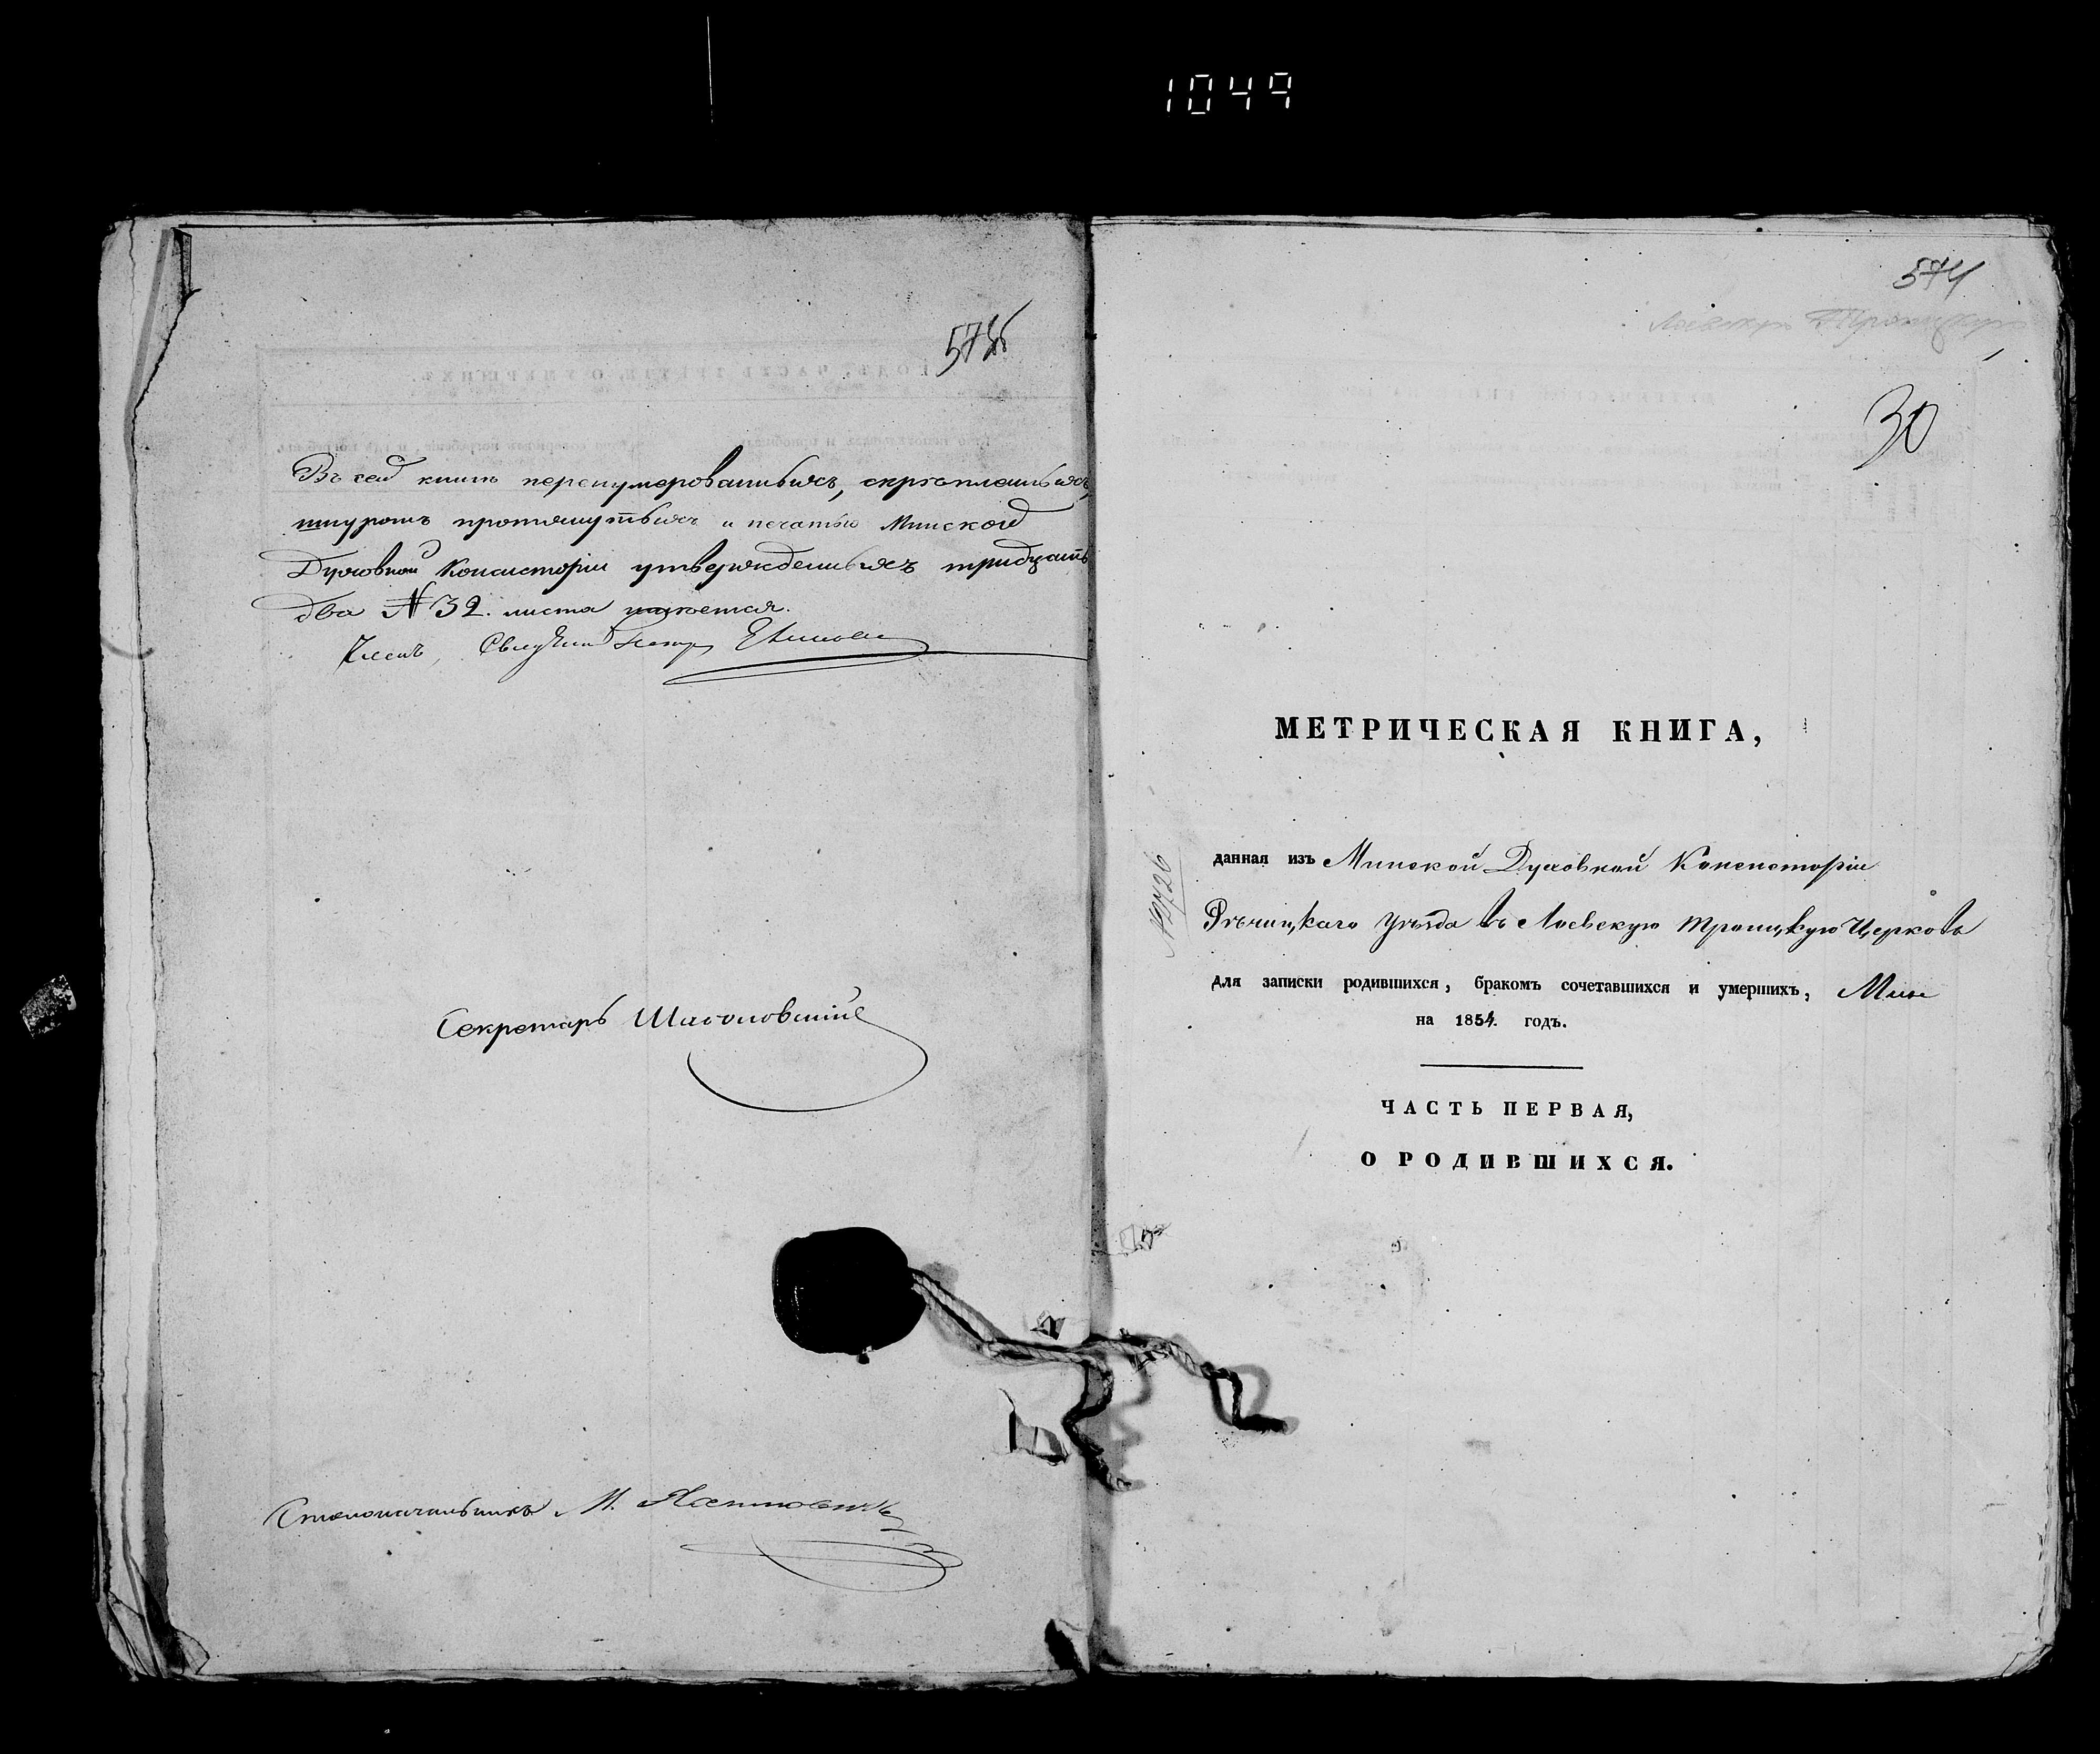 1049
Въ сей книгѣ перенумерованныхъ, скрѣпленныхъ,
шнуромъ протянутыхъ и печатью Минской
Духовной Консисторіи утвержденныхъ тридцать
два № 32. листа имѣется.
Членъ,
Секретарь
Столоначальникъ М.
574
Лоевскую Троицкую
30
МЕТРИЧЕСКАЯ КНИГА,
данная изъ Минской Духовной Консисторіи
Рѣчицкаго уѣзда въ Лоевскую Троицкую Церковь
для записки родившихся, бракомъ сочетавшихся и умершихъ,
на 1854. годъ.
ЧАСТЬ ПЕРВАЯ,
О РОДИВШИХСЯ.
№ 2726